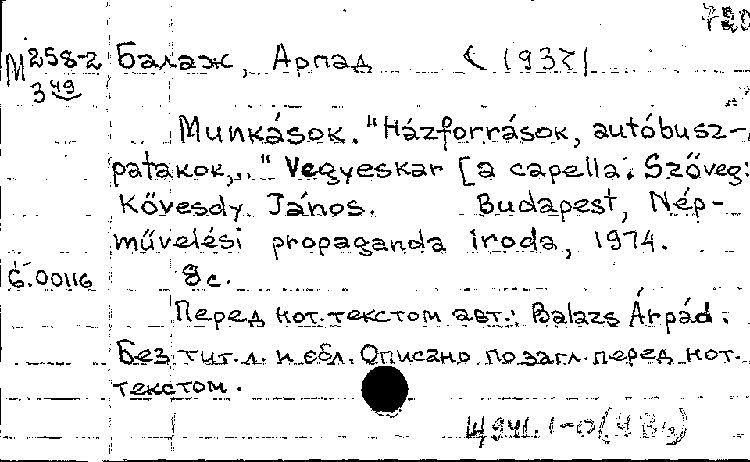 М 258-2 Балаж, Арпад (1937)
349
Munkások. "Házforrások, autóbusz-
patakok,.." Vegyeskar [a capella. Szöveg:
Kövesdy János. Budapest, Nép-
művelési propaganda iroda, 1974.
8 с.
Перед нот. текстом авт.: Balazs Árpád.
Без тит. л. и обл. Описано по загл. перед нот.
текстом.